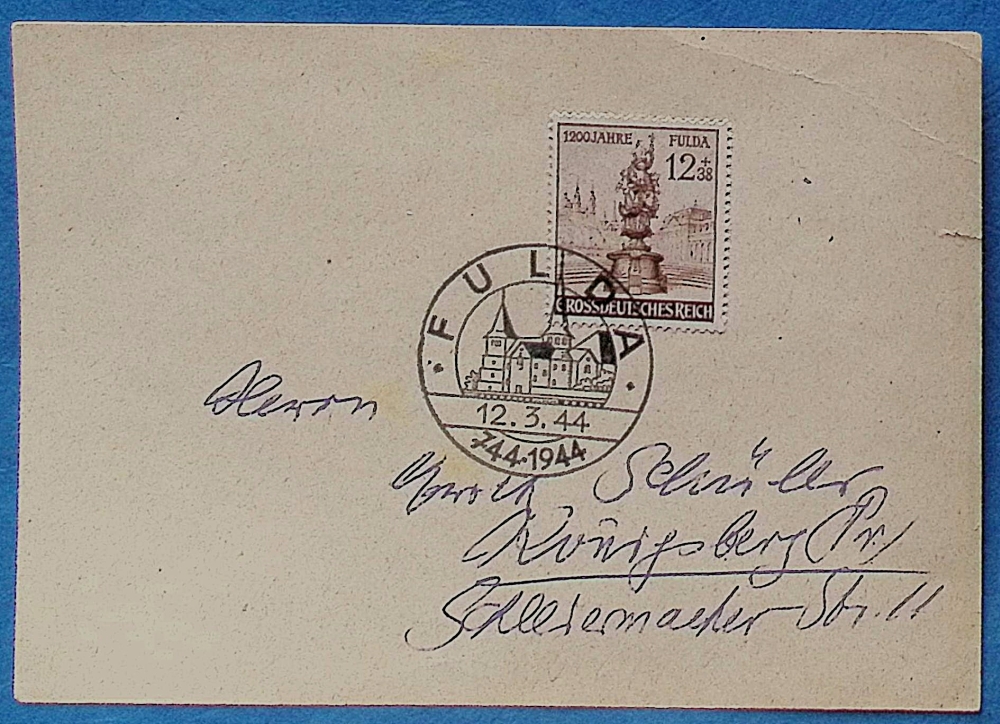 1200 JAHRE FULDA
12 + 38
GROSSDEUTSCHES REICH
FULDA
12.3.44
744-1944
Herrn
Schüller
Königsberg (Pr)
Schleiermacher-Str. 11